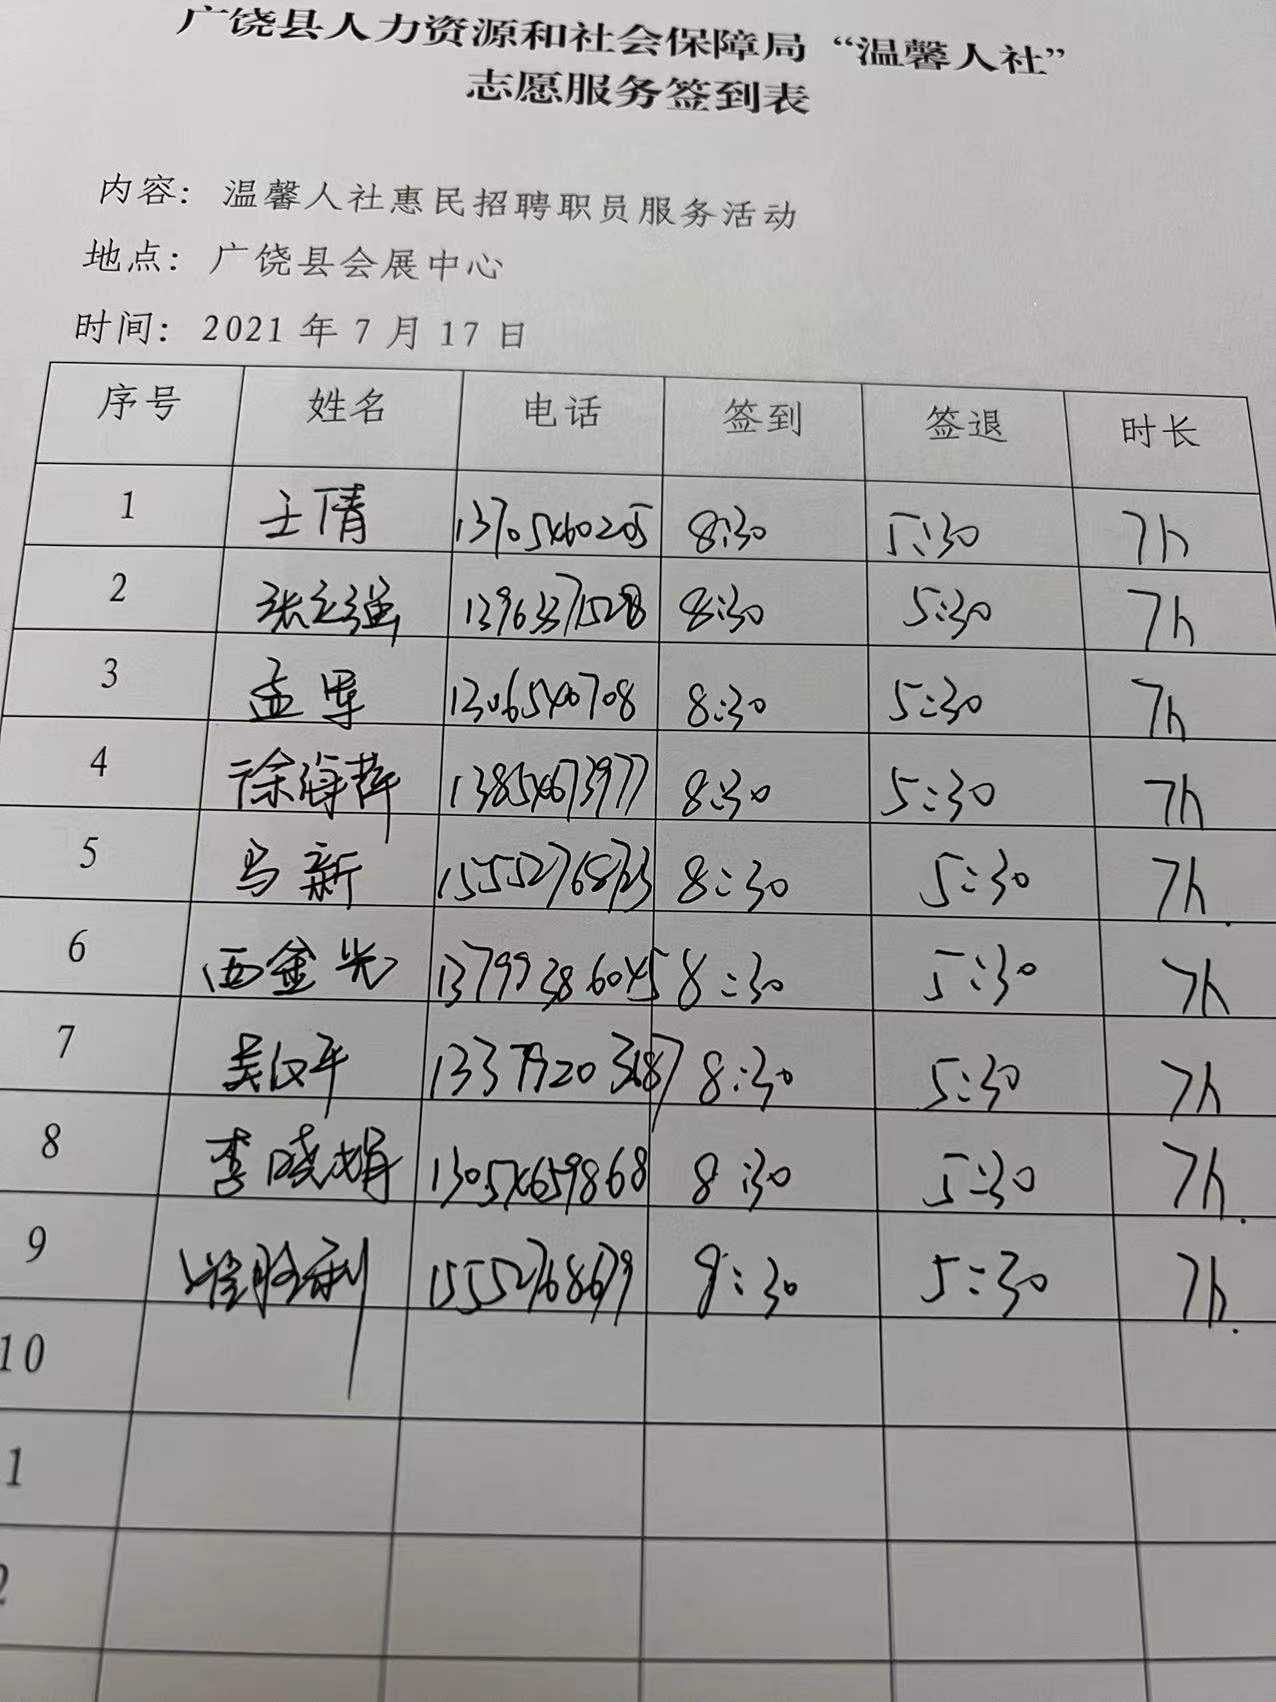 广饶县人力资源和社会保障局“温馨人社”
志愿服务签到表
内容：温馨人社惠民招聘职员服务活动
地点：广饶县会展中心
时间：2021年7月17日
序号 姓名 电话 签到 签退 时长
1 王倩 13705460205 8:30 5:30 7h
2 张立强 13963371528 8:30 5:30 7h
3 孟军 13065460708 8:30 5:30 7h
4 徐海萍 13854673977 8:30 5:30 7h
5 马新 15552768723 8:30 5:30 7h.
6 西金光 13799386045 8:30 5:30 7h
7 吴汉平 8:30 5:30 7h
8 李晓娟 13054659868 8:30 5:30 7h.
9 胜利 15552768679 8:30 5:30 7h.
10
1
2